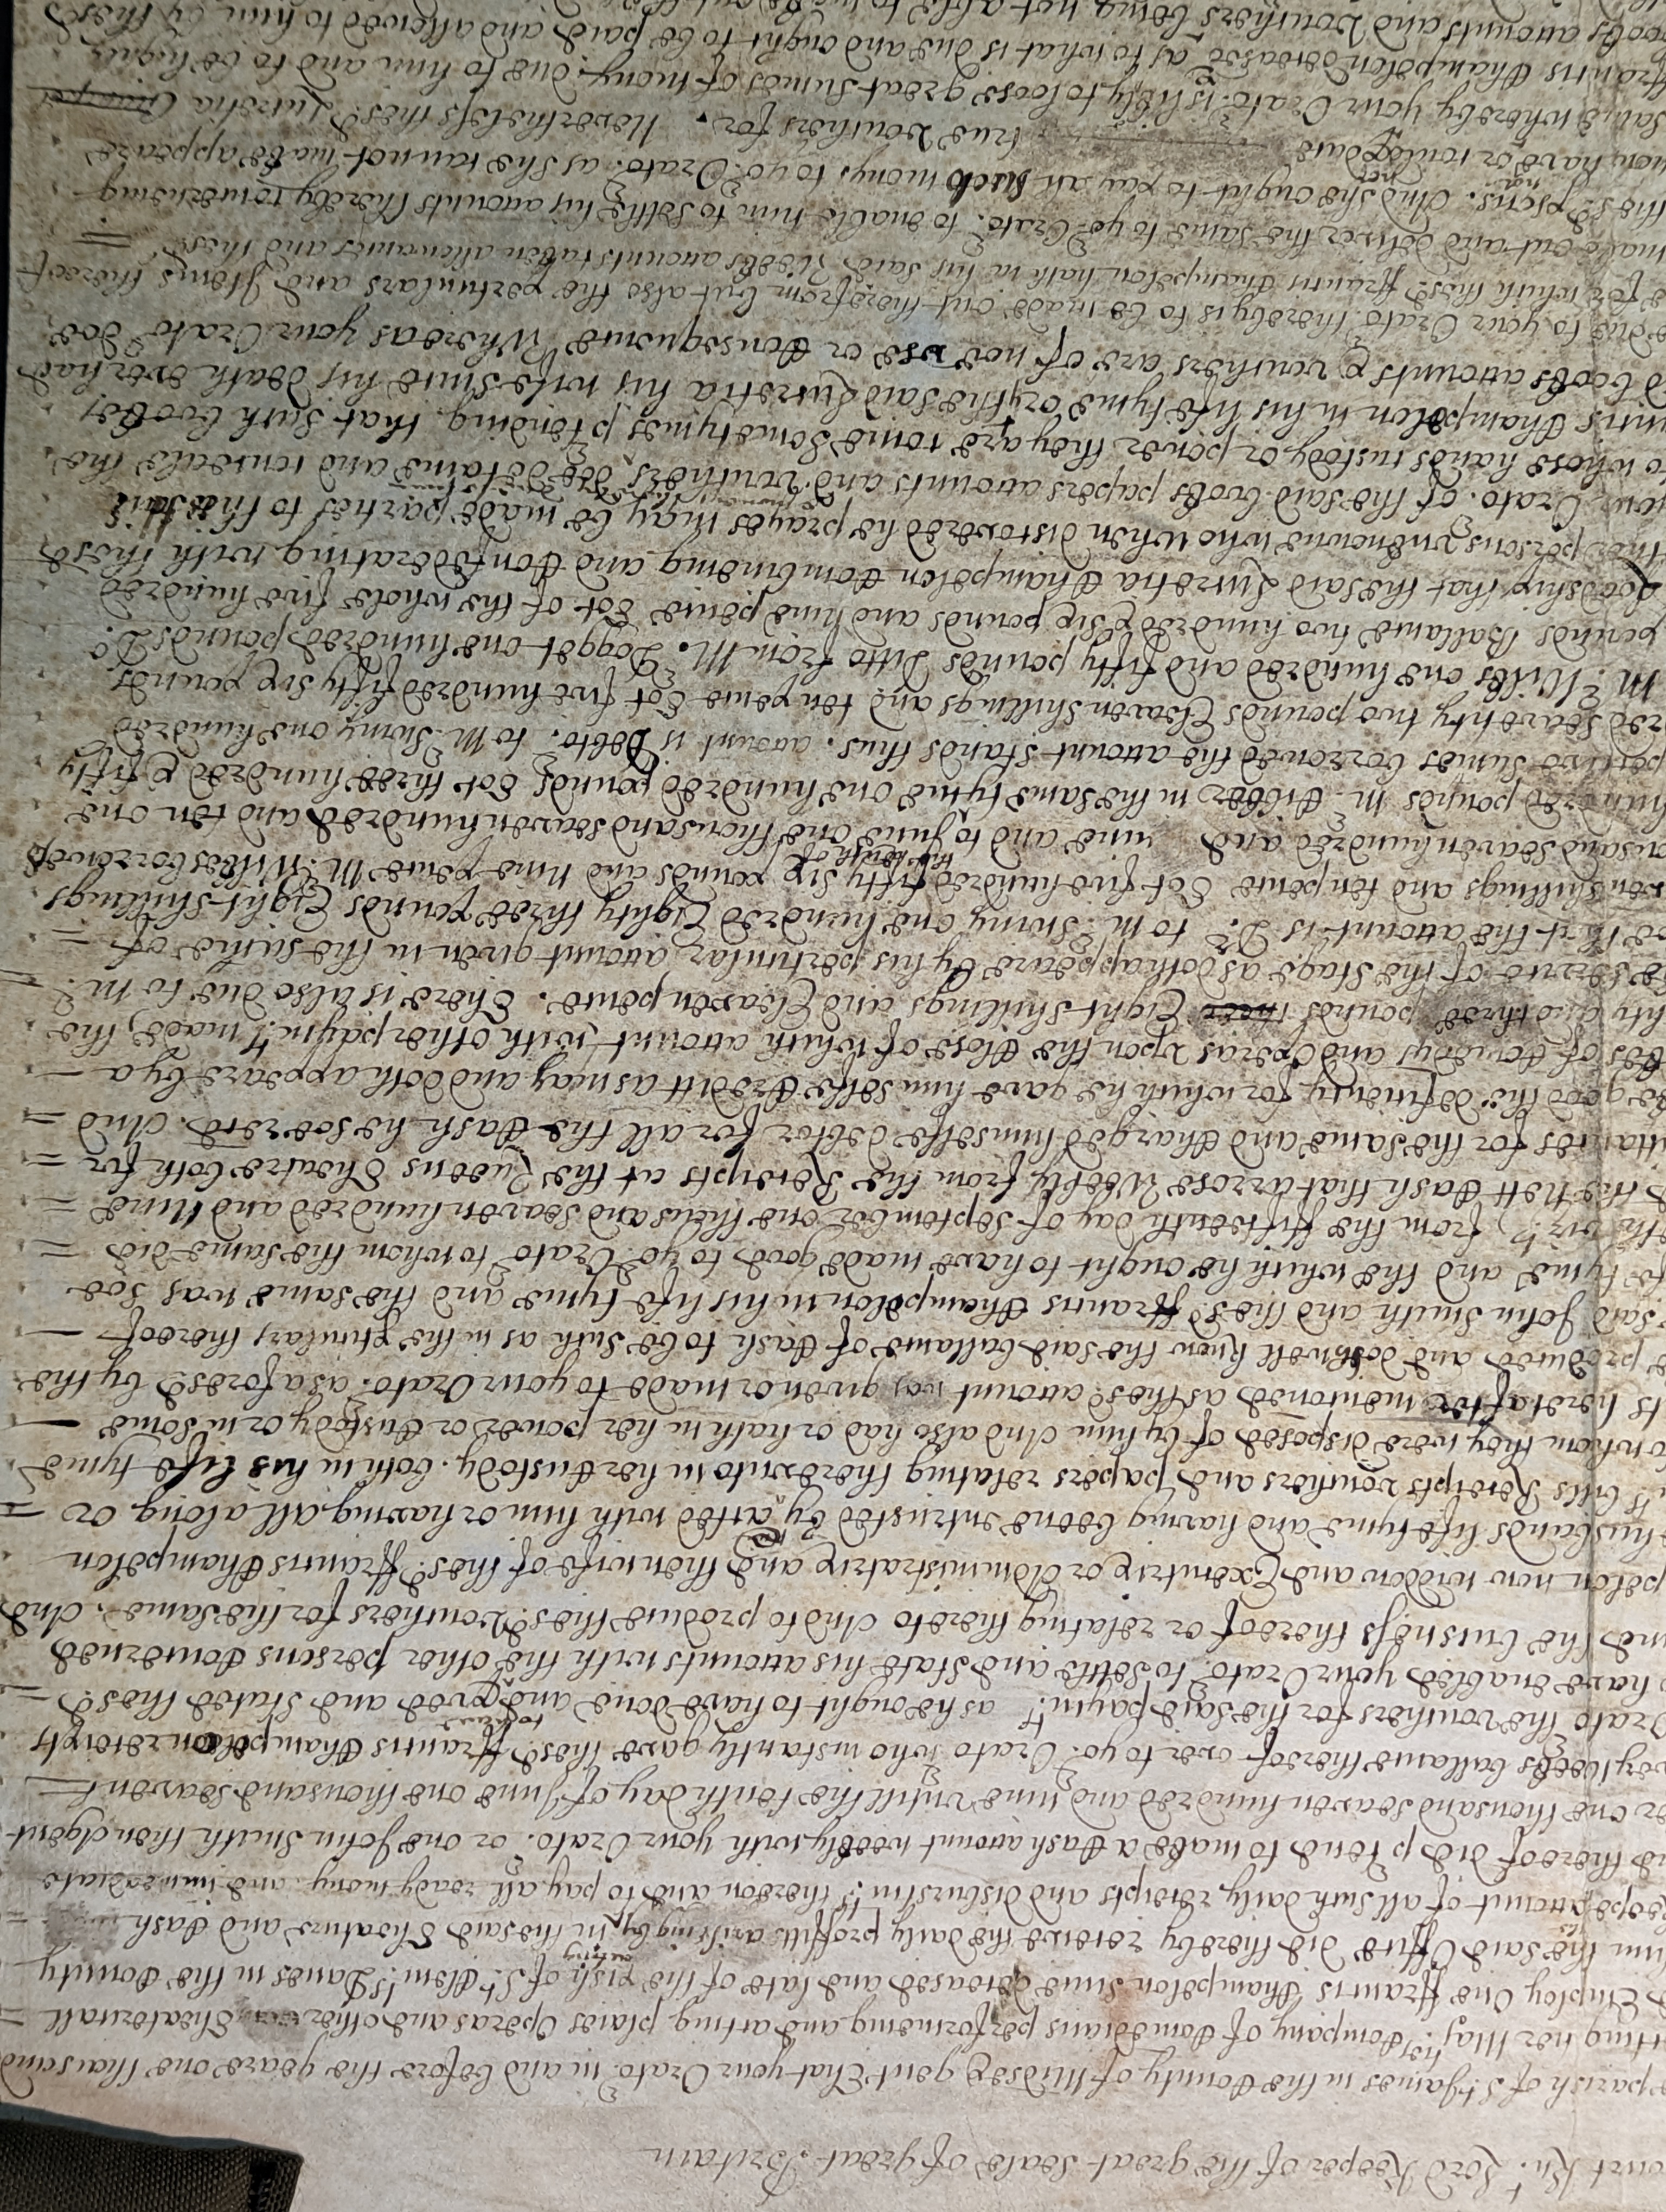 Court Kn.t Lord Keeper of the great Seale of great Brittain
parish of St James in the County of Midsex gent That your Orator in and before the yeare one thousand
her Maj.ts Company of Comedians performing and acting plaies Operas and other Theatricall
Employ One ffrancis Champelon since deceased and late of the pish of St Clem.ts Danes in the County
him the said Office did thereby receive the daily proffitts ariseing by acting in the said Theatre and Cash
keepe account of all such daily receipts and disbursm.ts thereon and to pay all ready mony and immediate
thereof did p tend to make a Cash account weekly with your Orato.r or one John Smith then Agent
one thousand seaven hundred and nine vntill the tenth day of June one thousand seaven
Weeks ballance thereof over to yo.r Orato.r who instantly gave the sd ffrancis Champelon receipts
Orato.r the vouchers for the said paym.ts as he ought to have done and and stated the sd
have enabled your Orato.r to settle and state his accounts with the other persons Concerned
the business thereof or relating thereto And to produce the sd Vouchers for the same. And
pelon now widdow and Executrix or Administratrix and then wife of the sd ffrancis Champelon
husbands life tyme and having beene intrusted by & acted with him or having all along or
bills Receipts vouchers and papers relating therevnto in her Custody both in his life tyme
whom they were disposed of by him And also had or hath in her power or Custody or in some
hereafter mentioned as the sd account was given or made to your Orato.r as afores.d by the
produced and doth well know the said ballance of Cash to be such as in the pticulars thereof
said John Smith and the sd ffrancis Champelon in his life tyme and the same was soe
tyme and the which he ought to have made good to yo.r Orato.r to whom the same did
vizt) from the fifteenth day of September one thousand seaven hundred and Nine
the Nett Cash that arose Weekly from the Receipts at the Queens Theatre both for
for the same and Charged himselfe debtor for all the Cash he soe rec.d And
good the deficiency for which he gave himselfe Creditt as may and doth appeare by a
of Comedys and Operas vpon the Close of which account with other paym.ts made, the
and three pounds Eight shillings and Eleaven pence. There is also due to M.r
service of the Stage as doth appeare by his perticular account given in the summe of
that the account is D.r to M.r Swiny one hundred Eighty three pounds Eight shillings
shillings and ten pence Tot five hundred fifty six pounds and nine pence M.r Wilks borrowed
seaven hundred and nine and to June one thousand seaven hundred and ten one
hundred pounds M.r Cibber in the same tyme one hundred pounds Tot three hundred & fifty
Sumes borrowed the account stands thus. account is Debto.r to M.r Swiny one hundred
seaventy two pounds Eleaven shillings and ten pence Tot five hundred fifty six pounds
M.r Wilks one hundred and fifty pounds Ditto from M.r Dogget one hundred pounds D.o
pounds Ballance two hundred & six pounds and nine pence Tot of the whole five hundred
Lordship that the said Lucretia Champelon Combineing and Confederating with those
persons vnknowne who when discovered he prayes may be made parties to this said
your Orato.r of the said books papers accounts and vouchers doe detaine and conceale the
to whose hands custody or power they are come Sometymes p tending, that such books,
Champelon in his life tyme or the said Lucretia his wife since his death ever had
books accounts & vouchers are of noe vse or Consequence Whereas your Orato.r doe
due to your Orato.r thereby is to be made out therefrom but also the perticulars and Items thereof
for which the sd ffrancis Champelon hath in his said Weeks accounts taken allowances and these
make out and deliver the same to yo.r Orato.r to enable him to settle his accounts thereby towarding
the sd psons. And she ought to pay all such monys to yo.r Orato.r as she cannot make appeare
have or produce true vouchers for. Neverthelesse the sd Lucretia
same whereby your Orato.r is likely to loose great Sumes of mony due to him and to be highly
ffrancis Champelon deceased as to what is due and ought to be paid and allowed to him by these
books accounts and Vouchers being not able to